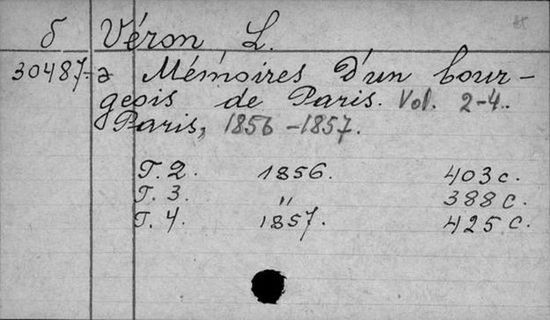 б Véron L.
30487-а Mémoires D'un bour-
geois de Paris. Vol. 2-4.
Paris, 1856-1857.
T. 2. 1856. 403 c.
T. 3. " 388 c.
T. 4. 1857. 425 c.